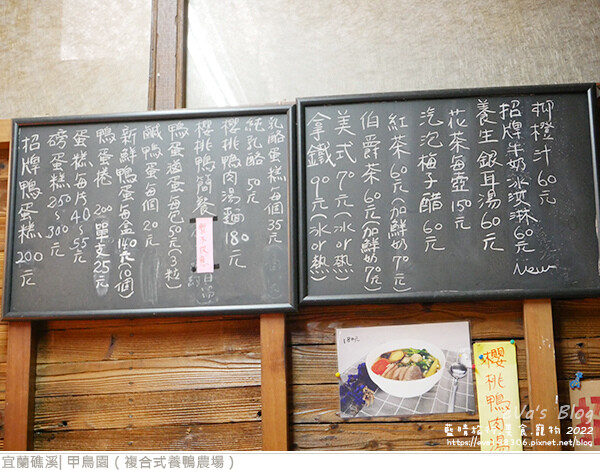 柳橙汁60元
招牌牛奶冰淇淋60元 New
養生銀耳湯60元
花茶每壺150元
汽泡梅子醋60元
紅茶60元(加鮮奶70元)
伯爵茶60元(加鮮奶70元)
美式70元(冰or熱)
拿鐵90元(冰or熱)
乳酪蛋糕每個35元
純乳酪50元
櫻桃鴨肉湯麵180元
櫻桃鴨簡餐
鴨蛋滷蛋每包50元(3粒)
鹹鴨蛋每個20元
新鮮鴨蛋每盒140元(10個)
鴨蛋捲200 單支25元
蛋糕每片40~55元
磅蛋糕250~300元
招牌鴨蛋糕200元
180元
櫻桃鴨肉
eVa's Blog
藍晴旅行.美食.寵物 2022
https://eva98306.pixnet.net/blog
宜蘭礁溪| 甲鳥園 ( 複合式養鴨農場 )